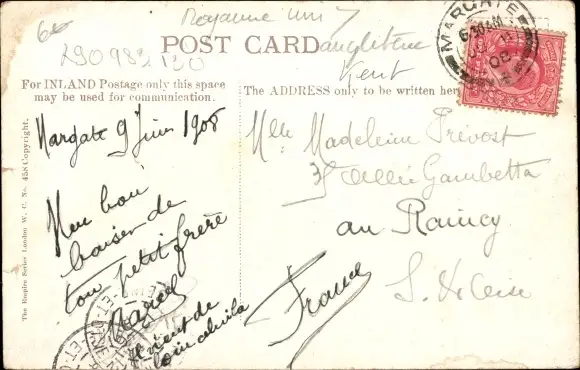 66
Royaume Uni
L90983130
POST CARD
angleterre
Kent
MARGATE
6.30 AM
JU
08
For INLAND Postage only this space
may be used for communication.
The ADDRESS only to be written here
Margate 9 Juin 1908
Un bon
baiser de
ton petit frère
Marcel
Il vient de
loin celui-là
Mlle Madeleine Prévost
Allée Gambetta
au Raincy
S. & Oise
France
The Empire Series London W. C. No. 458 Copyright.
SEINE-ET-OISE